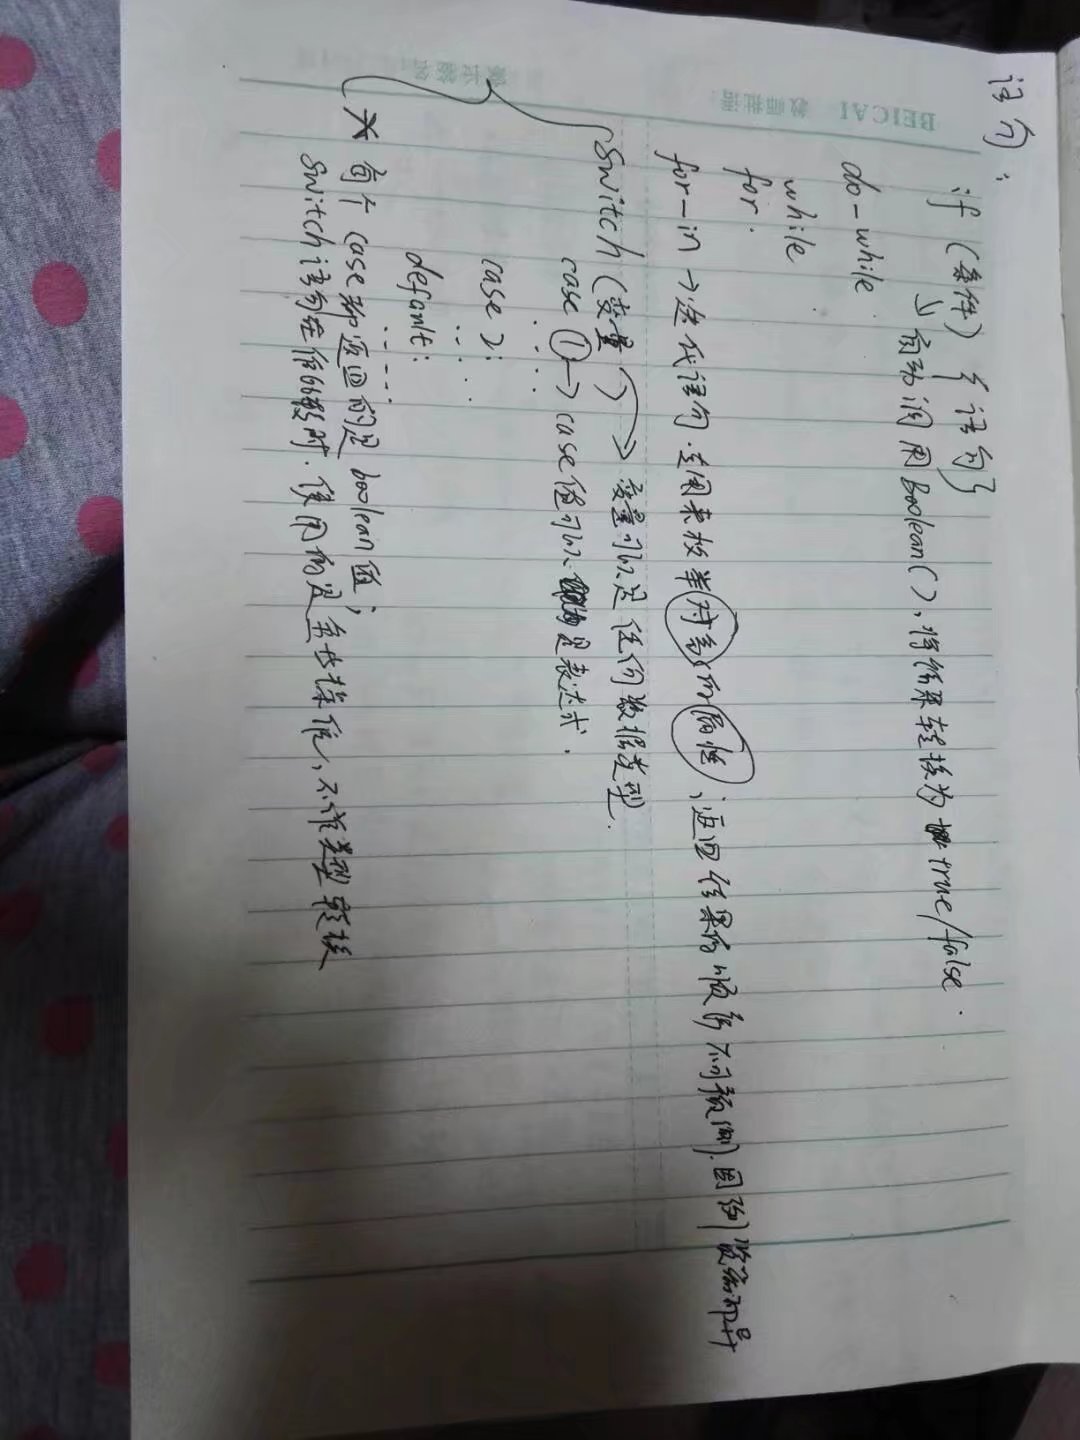 语句:
if (条件) {语句}
→自动调用Boolean(),将结果转换为 true/false.
do-while
while
for.
for-in →迭代语句.专用来枚举对象的属性,返回结果的顺序不可预测.因浏览器而异
switch (变量) → 变量可以是任何数据类型.
case ① → case值可以是表达式.
...
case 2:
...
default:
....
* 每个case都返回的是boolean值;
switch语句在值比较时.使用的是全等操作,不准类型转换
BEICAI 教师批语:
家长签名